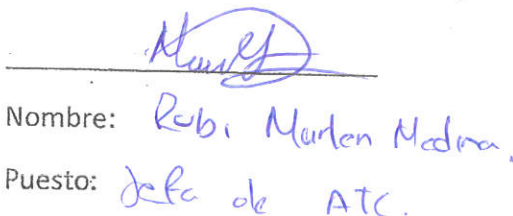 Nombre: Rubi Marlen Medina.
Puesto: Jefa de ATC.